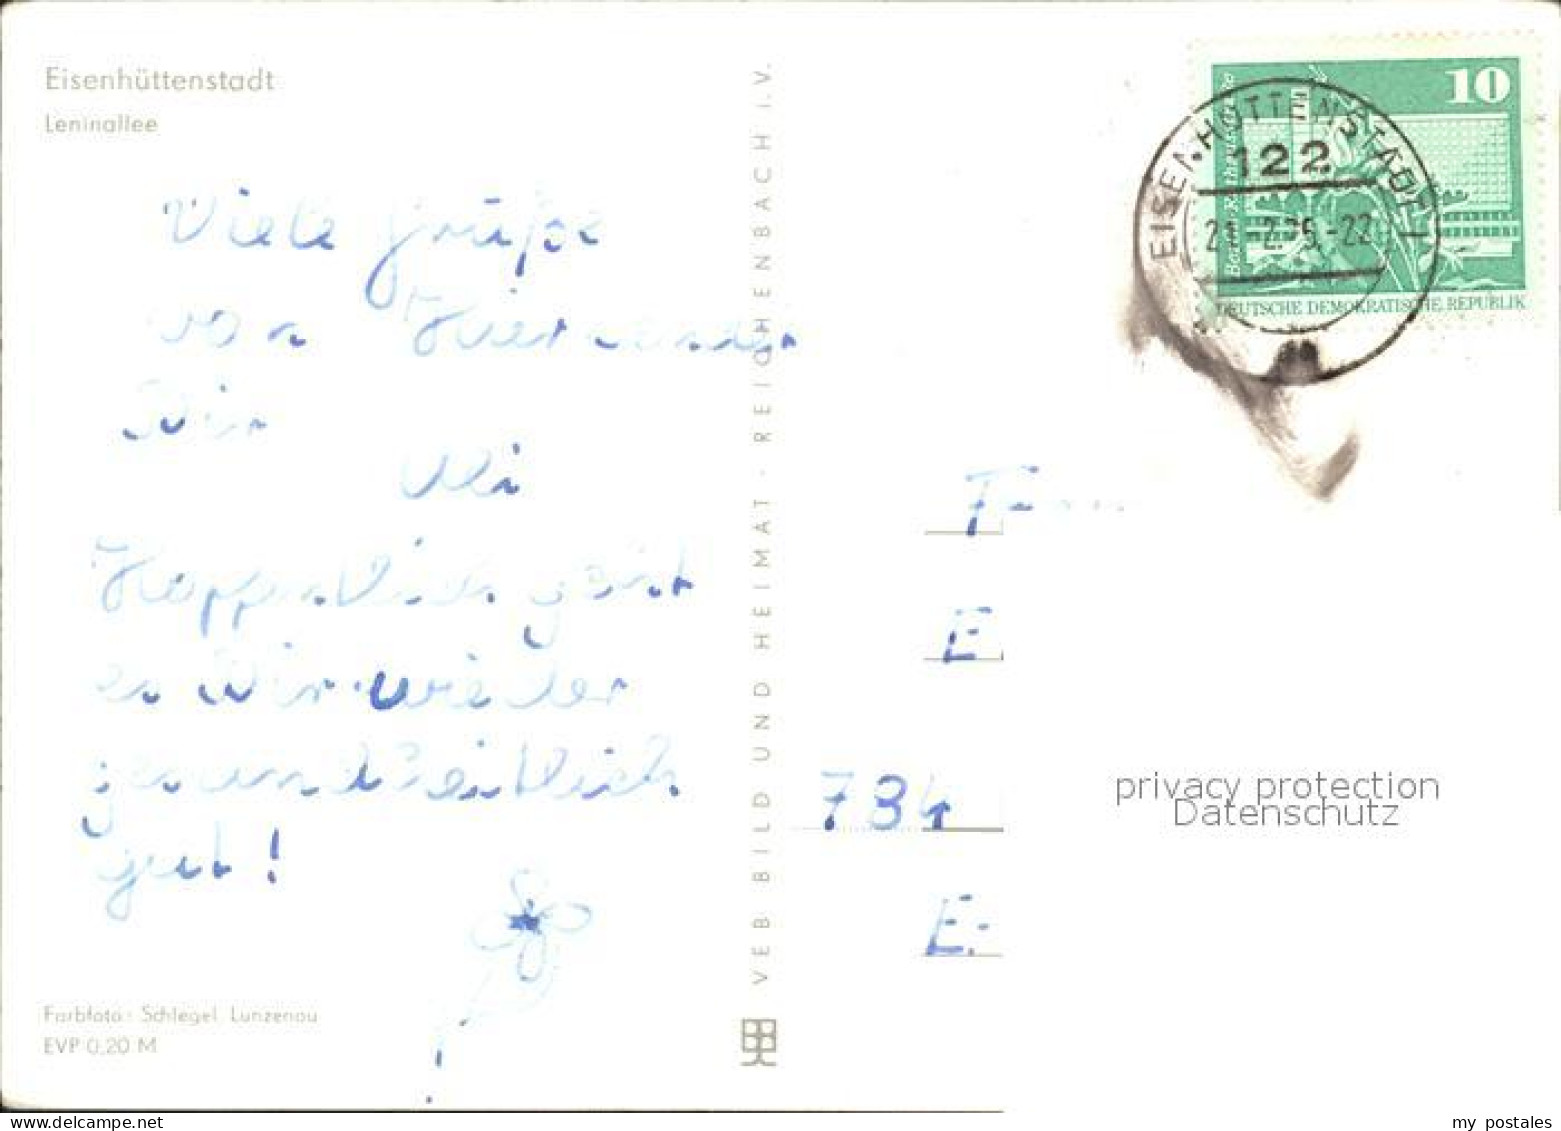 Eisenhüttenstadt
Leninallee
Viele Grüße
von
Dir
Uli
Hoffentlich geht
es Dir wieder
gesundheitlich
gut!
Farbfoto: Schlegel, Lunzenau
EVP 0,20 M
VEB BILD UND HEIMAT · REICHENBACH I. V.
10
DEUTSCHE DEMOKRATISCHE REPUBLIK
EISENHÜTTENSTADT 1
122
E
734
E
privacy protection
Datenschutz
my postales